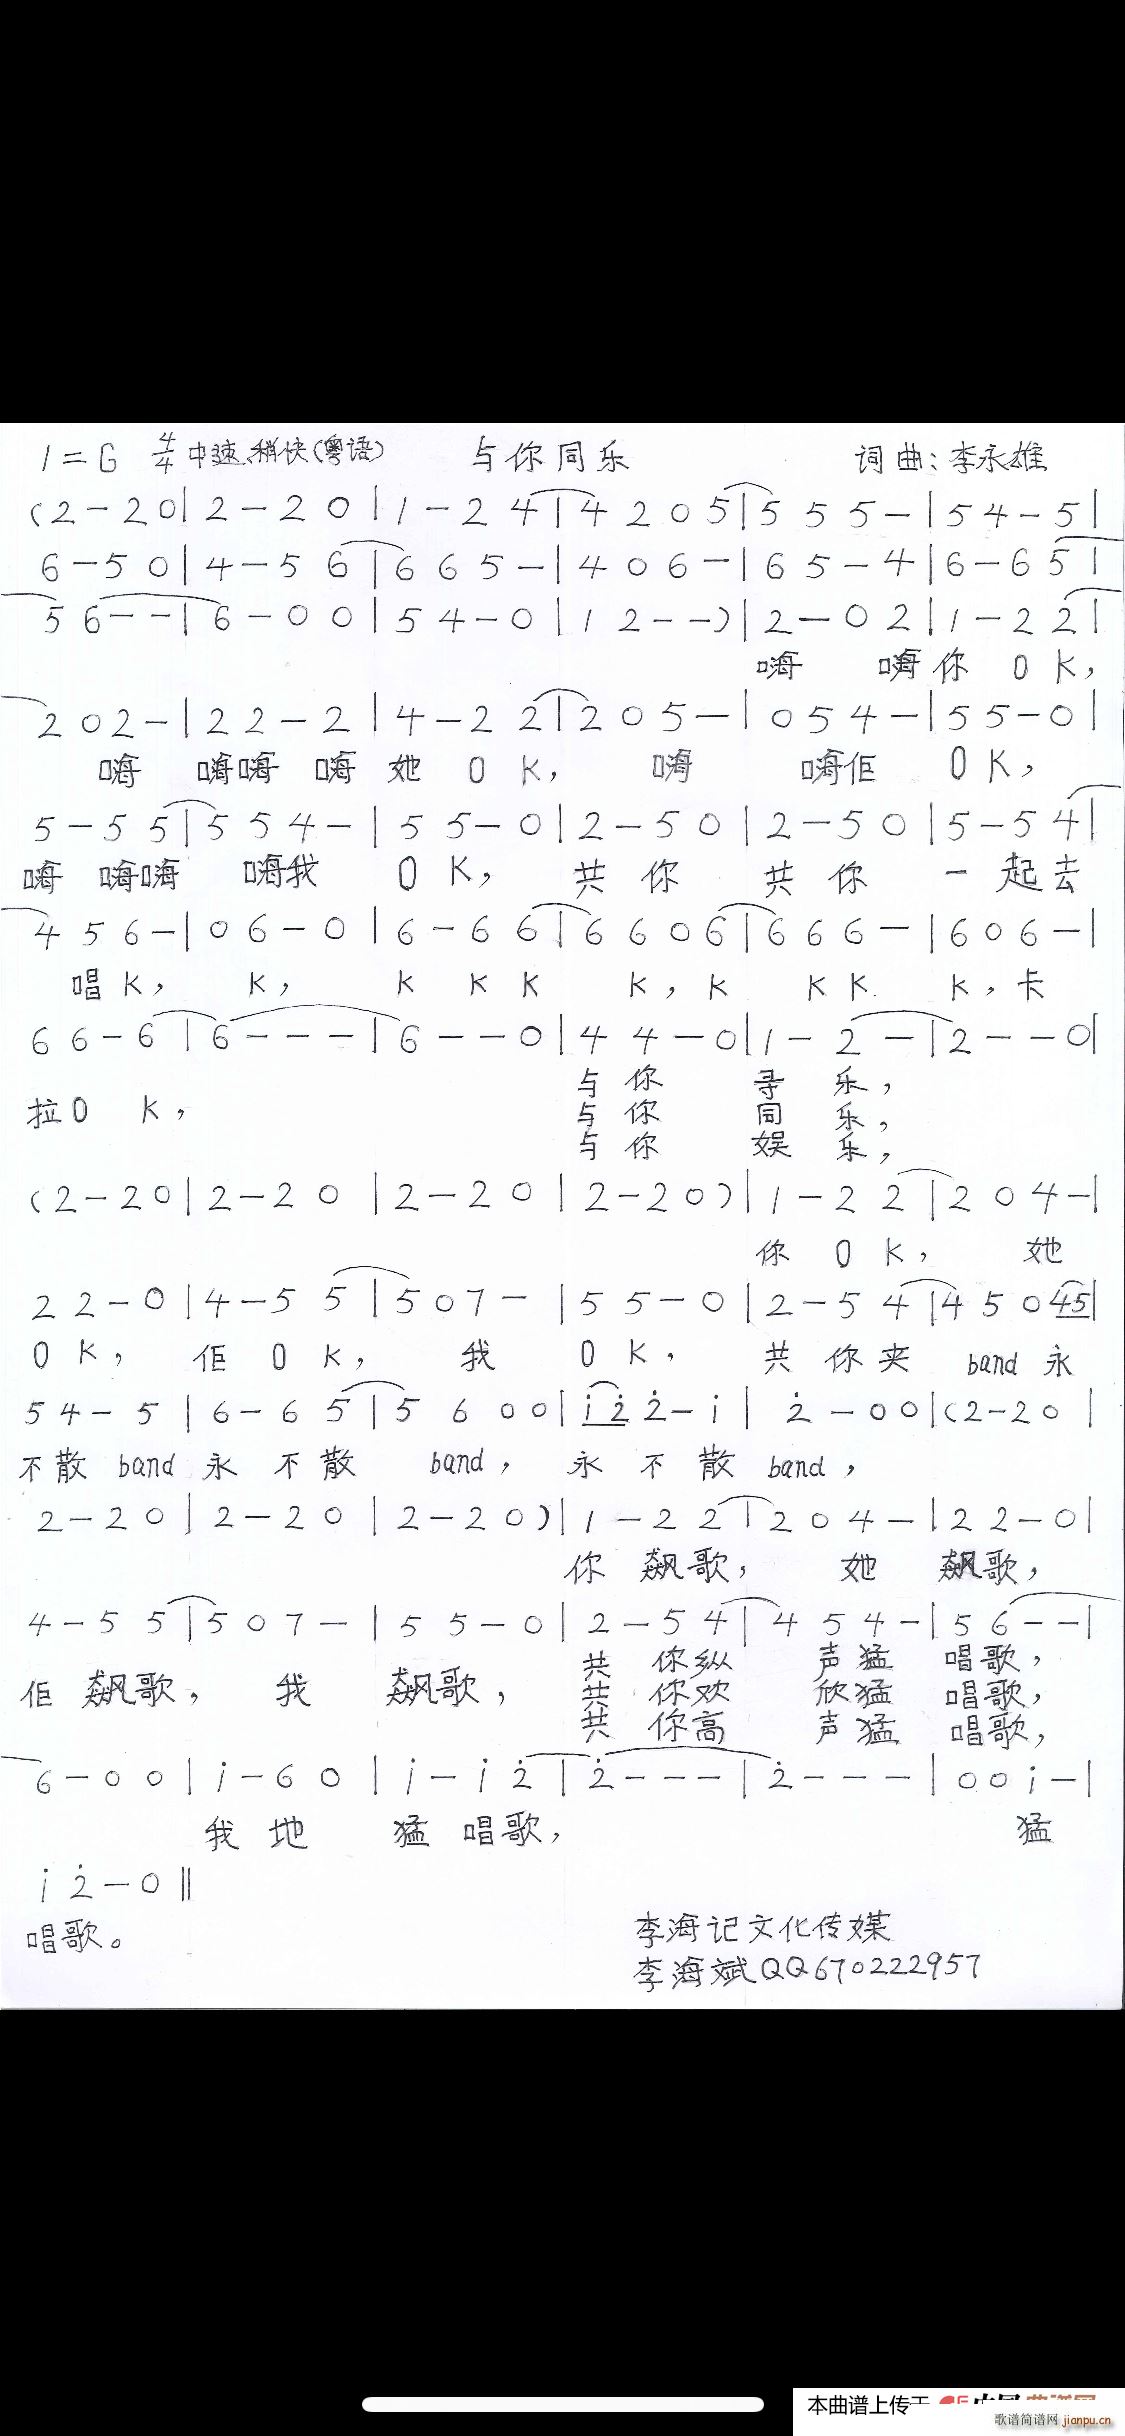 1=G 4/4 中速、稍快(粤语) 与你同乐 词曲:李永雄
(2-20|2-20|1-24|4205|555-|54-5|
6-50|4-56|665-|406-|65-4|6-65|
56--|6-00|54-0|12--)|2-02|1-22|
嗨 嗨你 O K,
202-|22-2|4-22|205-|054-|55-0|
嗨 嗨嗨 嗨她 O K, 嗨 嗨佢 O K,
5-55|554-|55-0|2-50|2-50|5-54|
嗨 嗨嗨 嗨我 O K, 共你 共你 一起去
456-|06-0|6-66|6606|666-|606-|
唱K, K, K K K K,K K K K,卡
66-6|6---|6--0|44-0|1-2-|2--0|
拉O K,
与你 寻 乐,
与你 同 乐,
与你 娱 乐,
(2-20|2-20|2-20|2-20)|1-22|204-|
你 O K, 她
22-0|4-55|507-|55-0|2-54|45045|
O K, 佢 O K, 我 O K, 共 你夹 band 永
54-5|6-65|5600|i̇2̇2̇-i̇|2̇-00|(2-20|
不散 band 永 不 散 band, 永 不 散 band,
2-20|2-20|2-20)|1-22|204-|22-0|
你 飙歌, 她 飙歌,
4-55|507-|55-0|2-54|454-|56--|
佢 飙歌, 我 飙歌,
共 你纵 声猛 唱歌,
共 你欢 欣猛 唱歌,
共 你高 声猛 唱歌,
6-00|i̇-60|i̇-i̇2̇|2̇---|2̇---|00i̇-|
我 地 猛 唱歌, 猛
i̇2̇-0‖
唱歌。
李海记文化传媒
李海斌QQ670222957
本曲谱上传于
歌谱简谱网 jianpu.cn